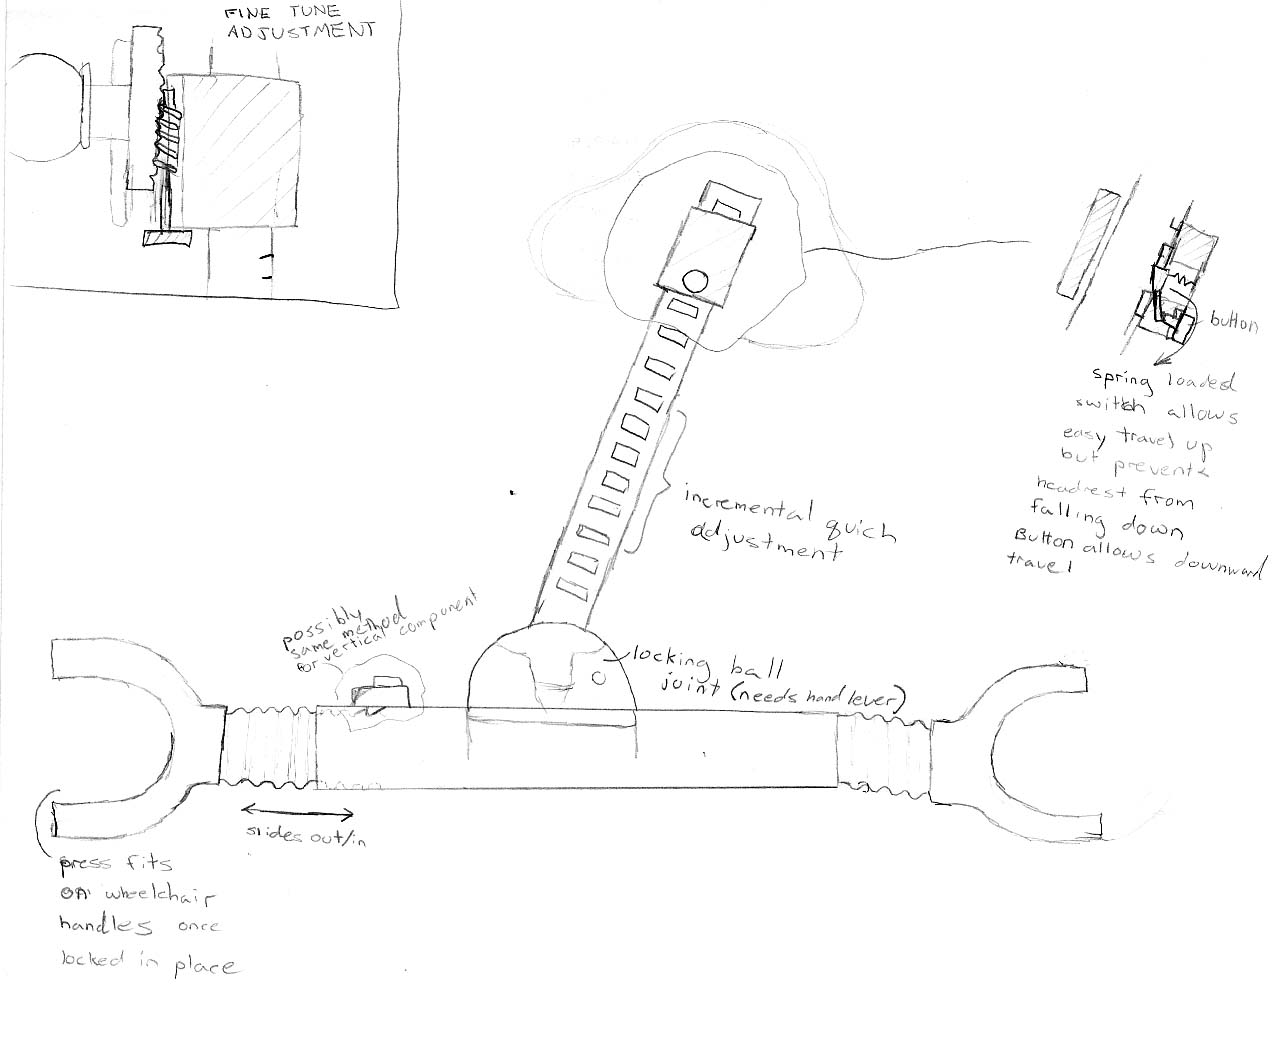 FINE TUNE
ADJUSTMENT
button
spring loaded
switch allows
easy travel up
but prevents
headrest from
falling down
Button allows downward
travel
incremental quich
adjustment
possibly
same method
for vertical component
locking ball
joint (needs hand lever)
slides out/in
press fits
on wheelchair
handles once
locked in place